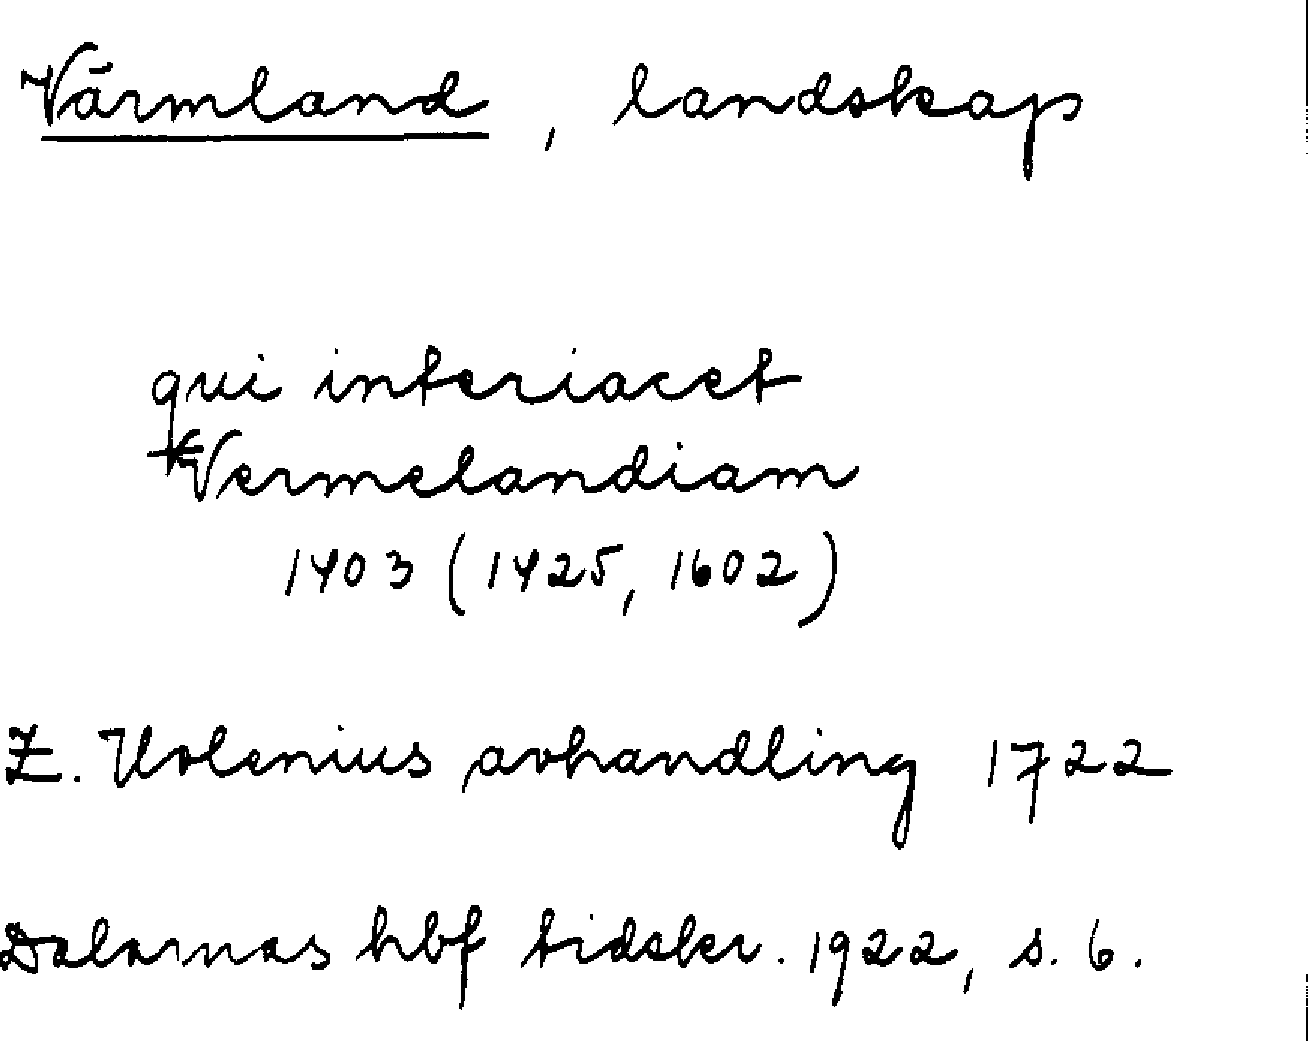 Värmland, landskap
qui interiacet
Vermelandiam
1403 (1425, 1602)
Z. Uolenius avhandling 1722
Dalarnas hbf tidskr. 1922, s. 6.